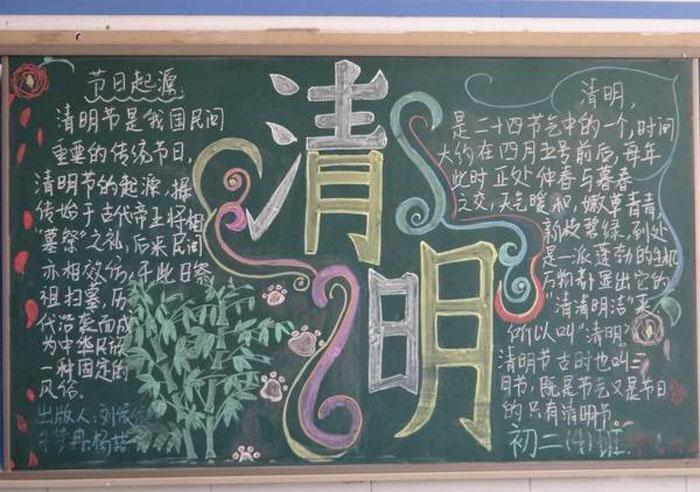 节日起源:
清明节是我国民间
重要的传统节日,
清明节的起源,据
传始于古代帝王将相
"墓祭"之礼,后来民间
亦相效仿,于此日祭
祖扫墓,历
代沿袭而成
为中华民族
一种固定的
风俗。
出版人:刘
丹 杨
清
明
清明,
是二十四节气中的一个,时间
大约在四月五号前后,每年
此时正处仲春与暮春
之交,天气暖和,嫩草青青,
新枝碧绿,到处
是一派蓬勃的生机
万物都显出它的
"清清明洁"来
所以叫"清明"
清明节古时也叫三
月节,既是节气又是节日
的只有清明节。
初二(4)班